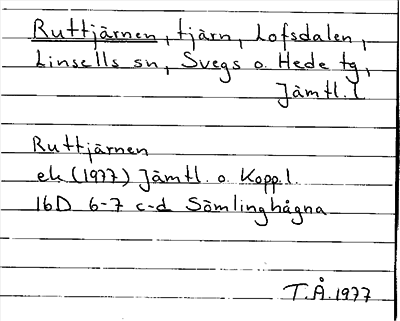 Ruttjärnen, tjärn, Lofsdalen,
Linsells sn, Svegs o. Hede tg,
Jämtl. l
Ruttjärnen
ek (1977) Jämtl. o. Koppl.
16D 6-7 c-d Sömlinghågna
T.Å. 1977